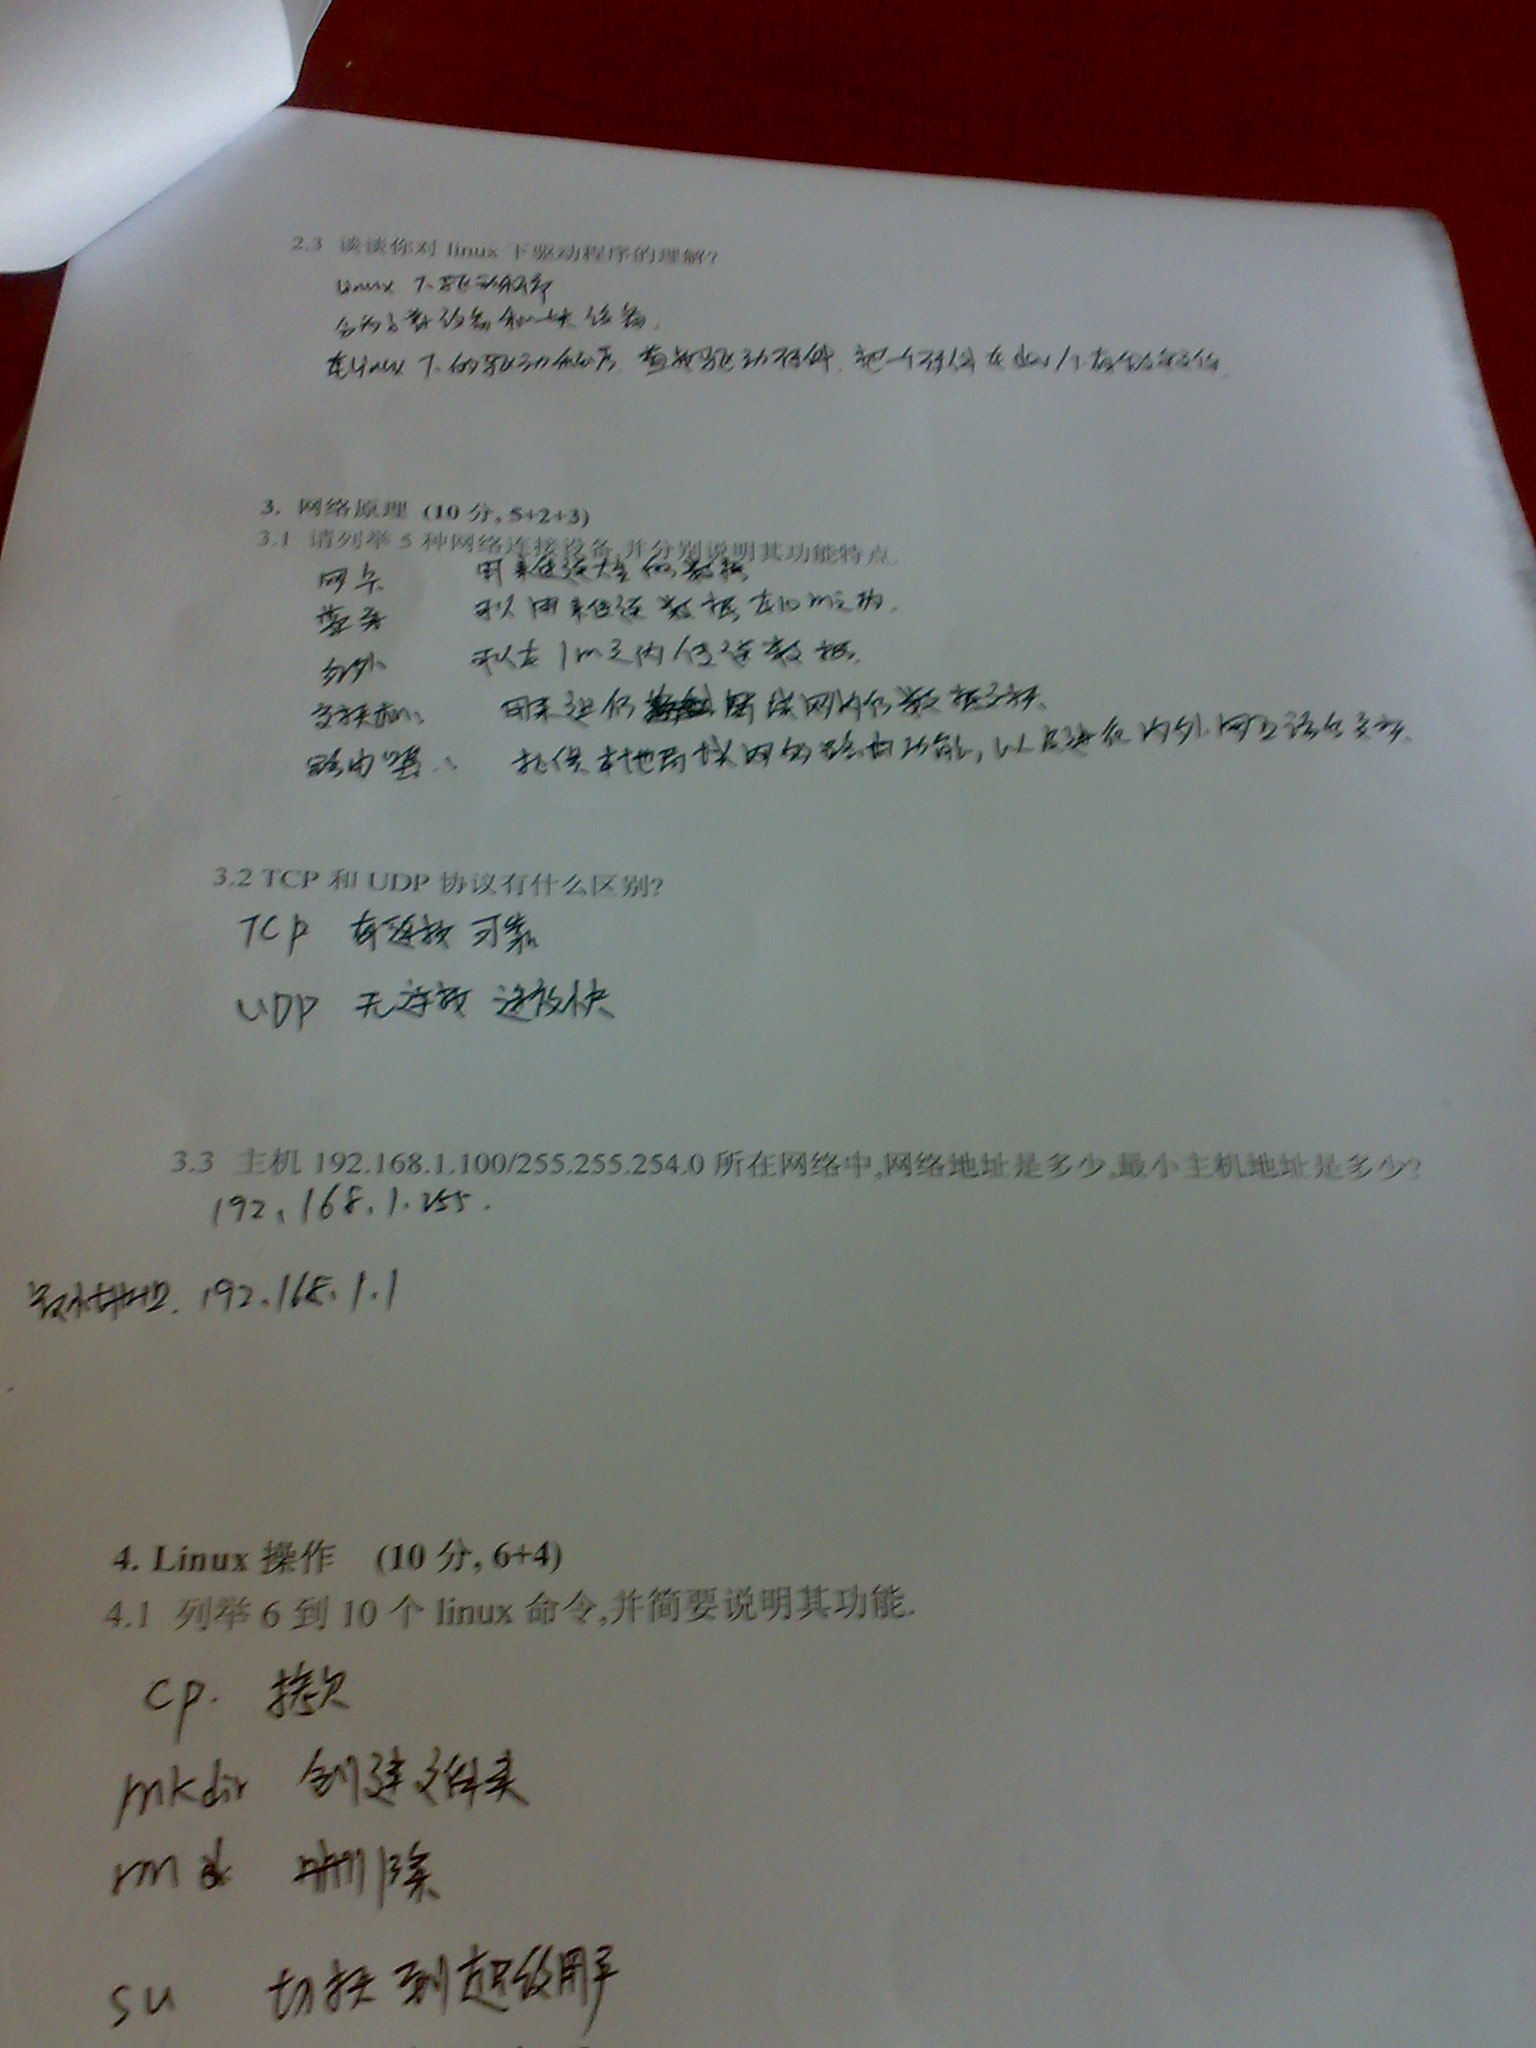 2.3 谈谈你对 linux 下驱动程序的理解?
Linux 下驱动程序
分为字符设备和块设备.
在Linux 下的驱动程序
3. 网络原理 (10 分, 5+2+3)
3.1 请列举 5 种网络连接设备,并分别说明其功能特点.
网卡 用来传送大量的数据
蓝牙 可以用来传送数据在10m之内.
红外 可以在1m之内传送数据.
交换机: 用来进行 局域网内的数据交换.
路由器: 提供本地局域网的路由功能, 以及进行内外网
3.2 TCP 和 UDP 协议有什么区别?
TCP 有连接 可靠
UDP 无连接 速度快
3.3 主机 192.168.1.100/255.255.254.0 所在网络中,网络地址是多少,最小主机地址是多少?
192.168.1.255.
最小地址. 192.168.1.1
4. Linux 操作 (10 分, 6+4)
4.1 列举 6 到 10 个 linux 命令,并简要说明其功能.
cp. 拷贝
mkdir 创建文件夹
rm 删除
su 切换到超级用户